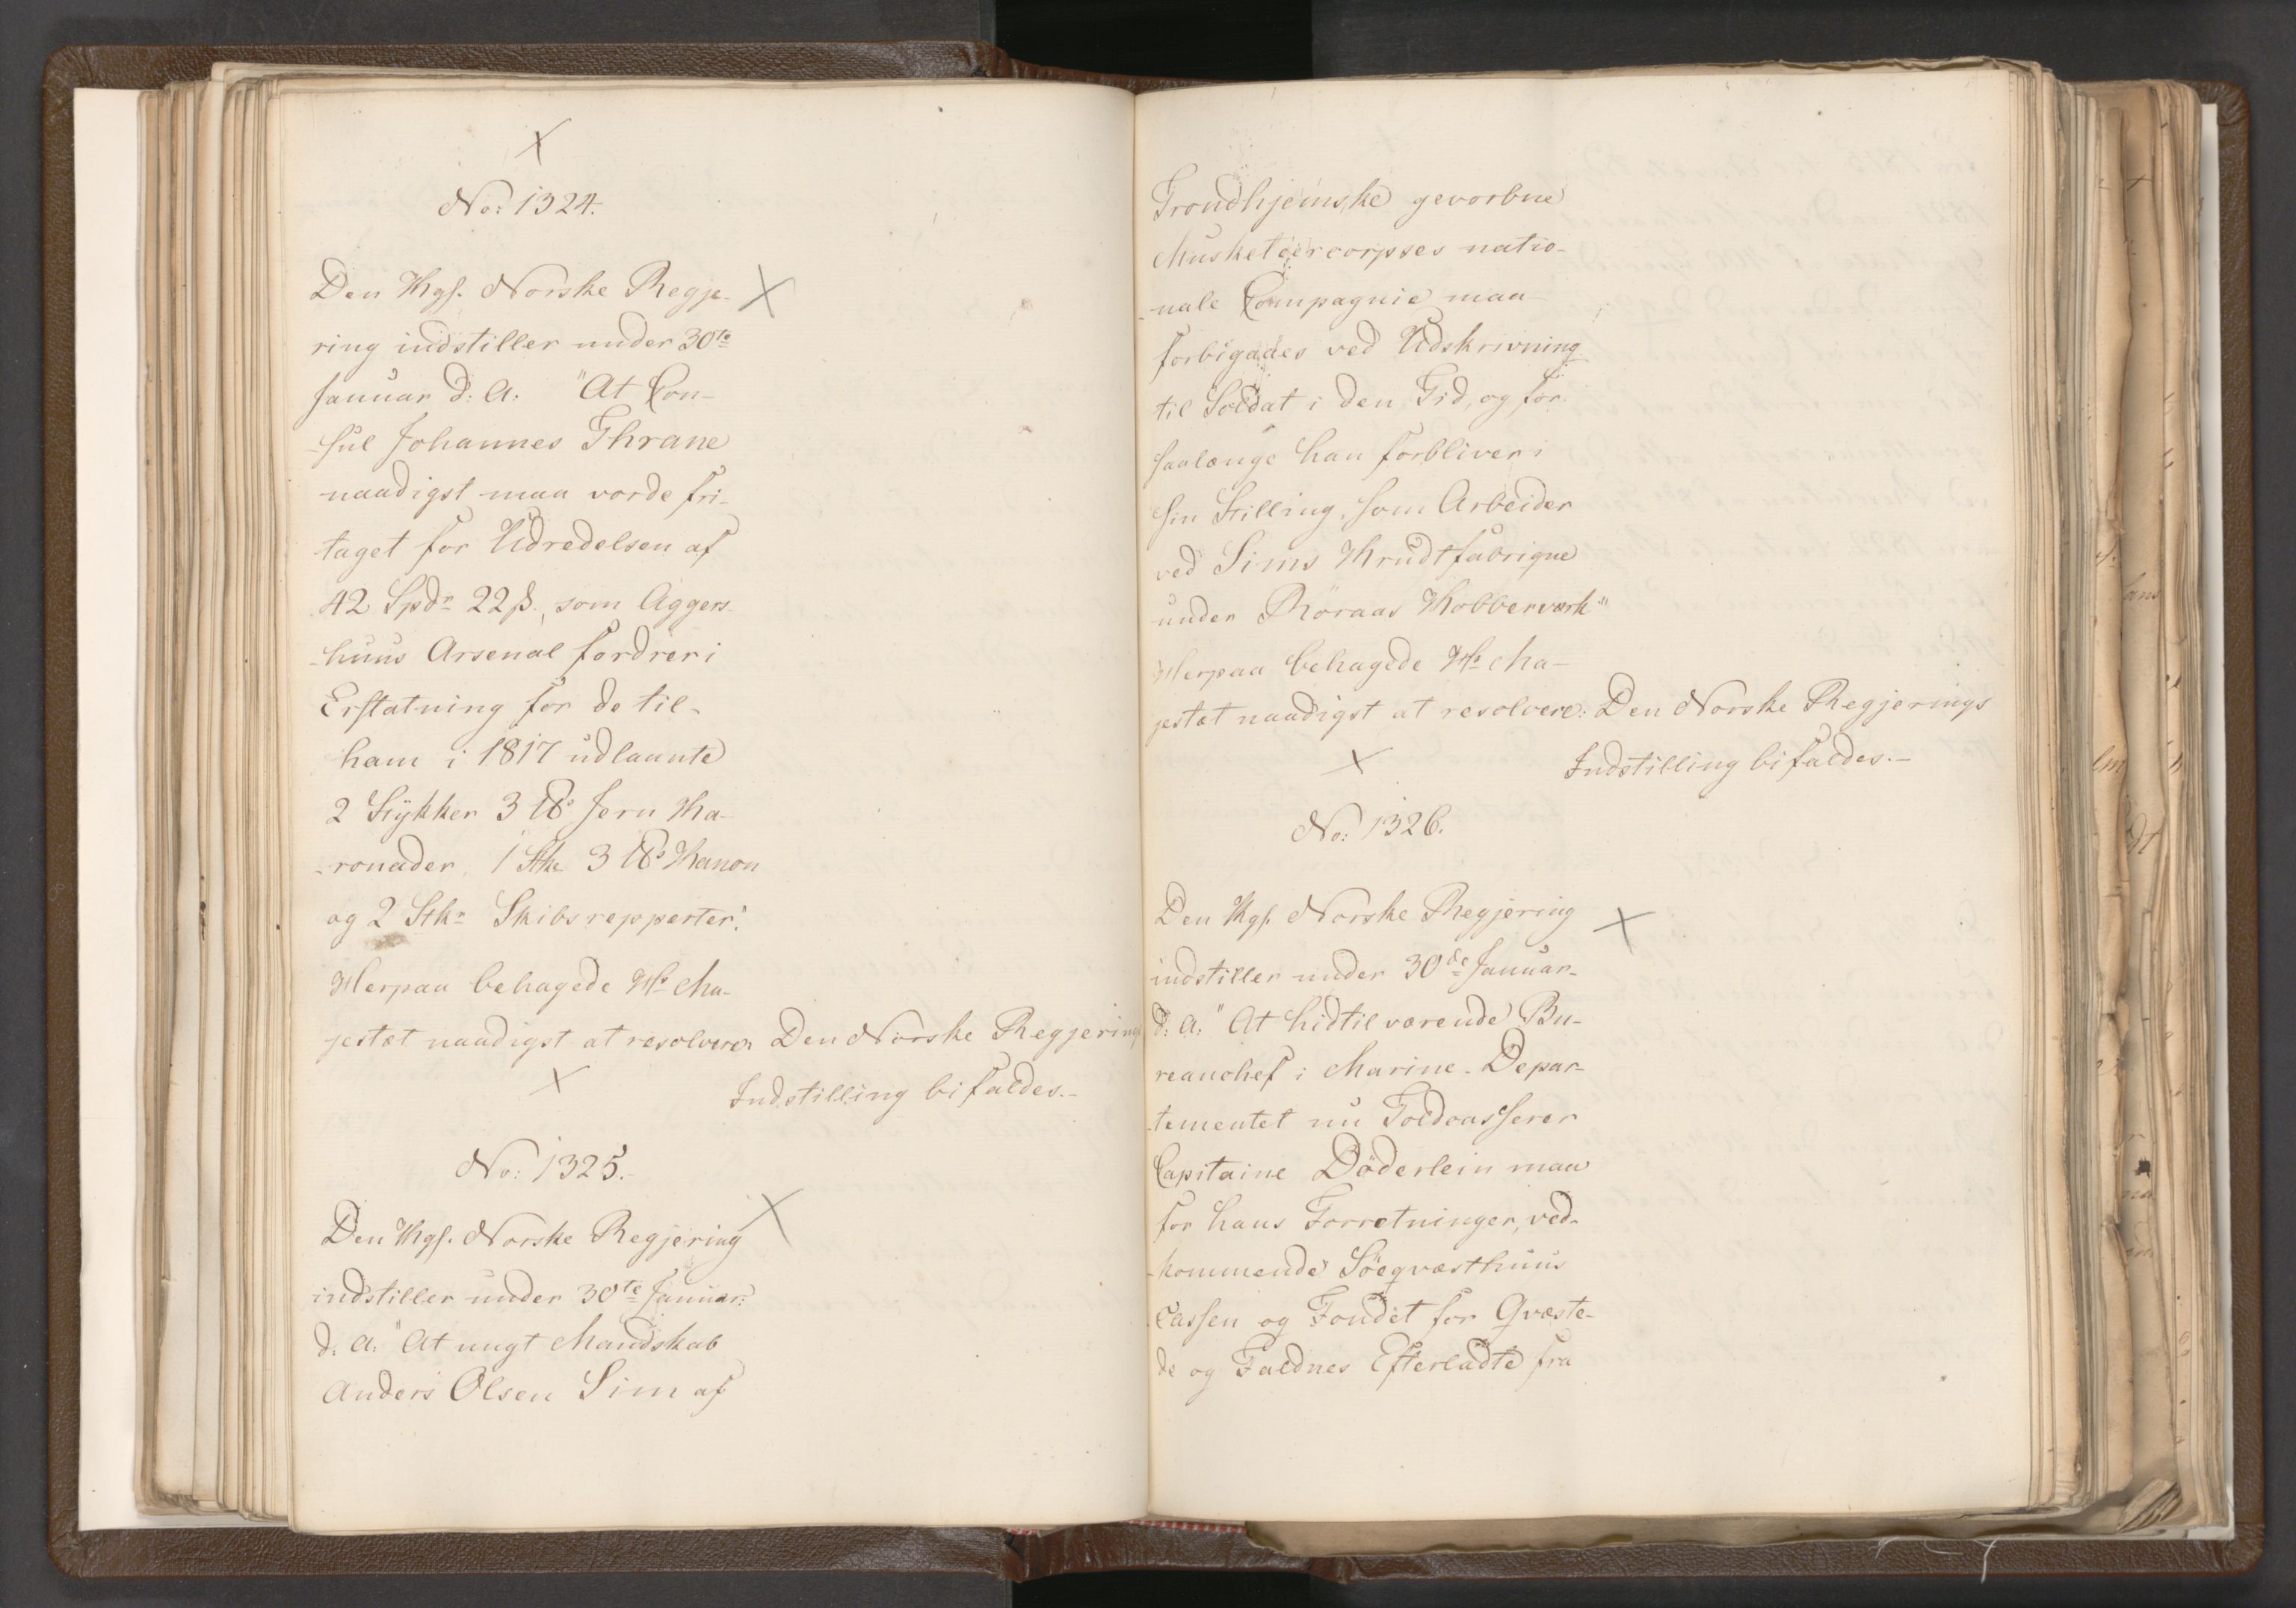 No: 1324.
Den Kgl. Norske Regje-
ring indstiller under 30te
Januar d: A: "At Con-
-sul Johannes Thrane
naadigst maa vorde fri-
taget for Udredelsen af
42 Spdr 22 ß., som Aggers-
-huus Arsenal fordrer i
Erstatning for de til-
ham i 1817 udlaante
2 Stykker 3 ℔s Jern Ka-
-ronader, 1 Stk 3 ℔s Kanon
og 2 Stkr Skibsrepperter".
Herpaa behagede Hs Ma-
jestæt naadigst at resolvere: Den Norske Regjerings
Indstilling bifaldes.-
No: 1325.-
Den Kgl. Norske Regjering
indstiller under 30te Januar:
d: A: "At ungt Mandskab
Anders Olsen Sim af
Trondhjemske gevorbne
Musketeercorpses natio-
-nale Compagnie maa
forbigaaes ved Udskrivning
til Soldat i den Tid, og for
saalænge han forbliver i
sin Stilling, som Arbeider
ved Sims Krudtfabrique
under Röraas Kobberværk"
Herpaa behagede Hs Ma-
jestæt naadigst at resolvere: Den Norske Regjerings
Indstilling bifaldes.-
No: 1326.
Den Kgl. Norske Regjering
indstiller under 30de Januar-
d: A: "At hidtilværende Bu-
reauchef i Marine-Depar-
-tementet nu Toldcasserer
Capitaine Döderlein maa
for hans Forretninger, ved-
-kommende Söeqvæsthuus
Cassen og Fondet for Qvæste-
de og Faldnes Efterladte fra